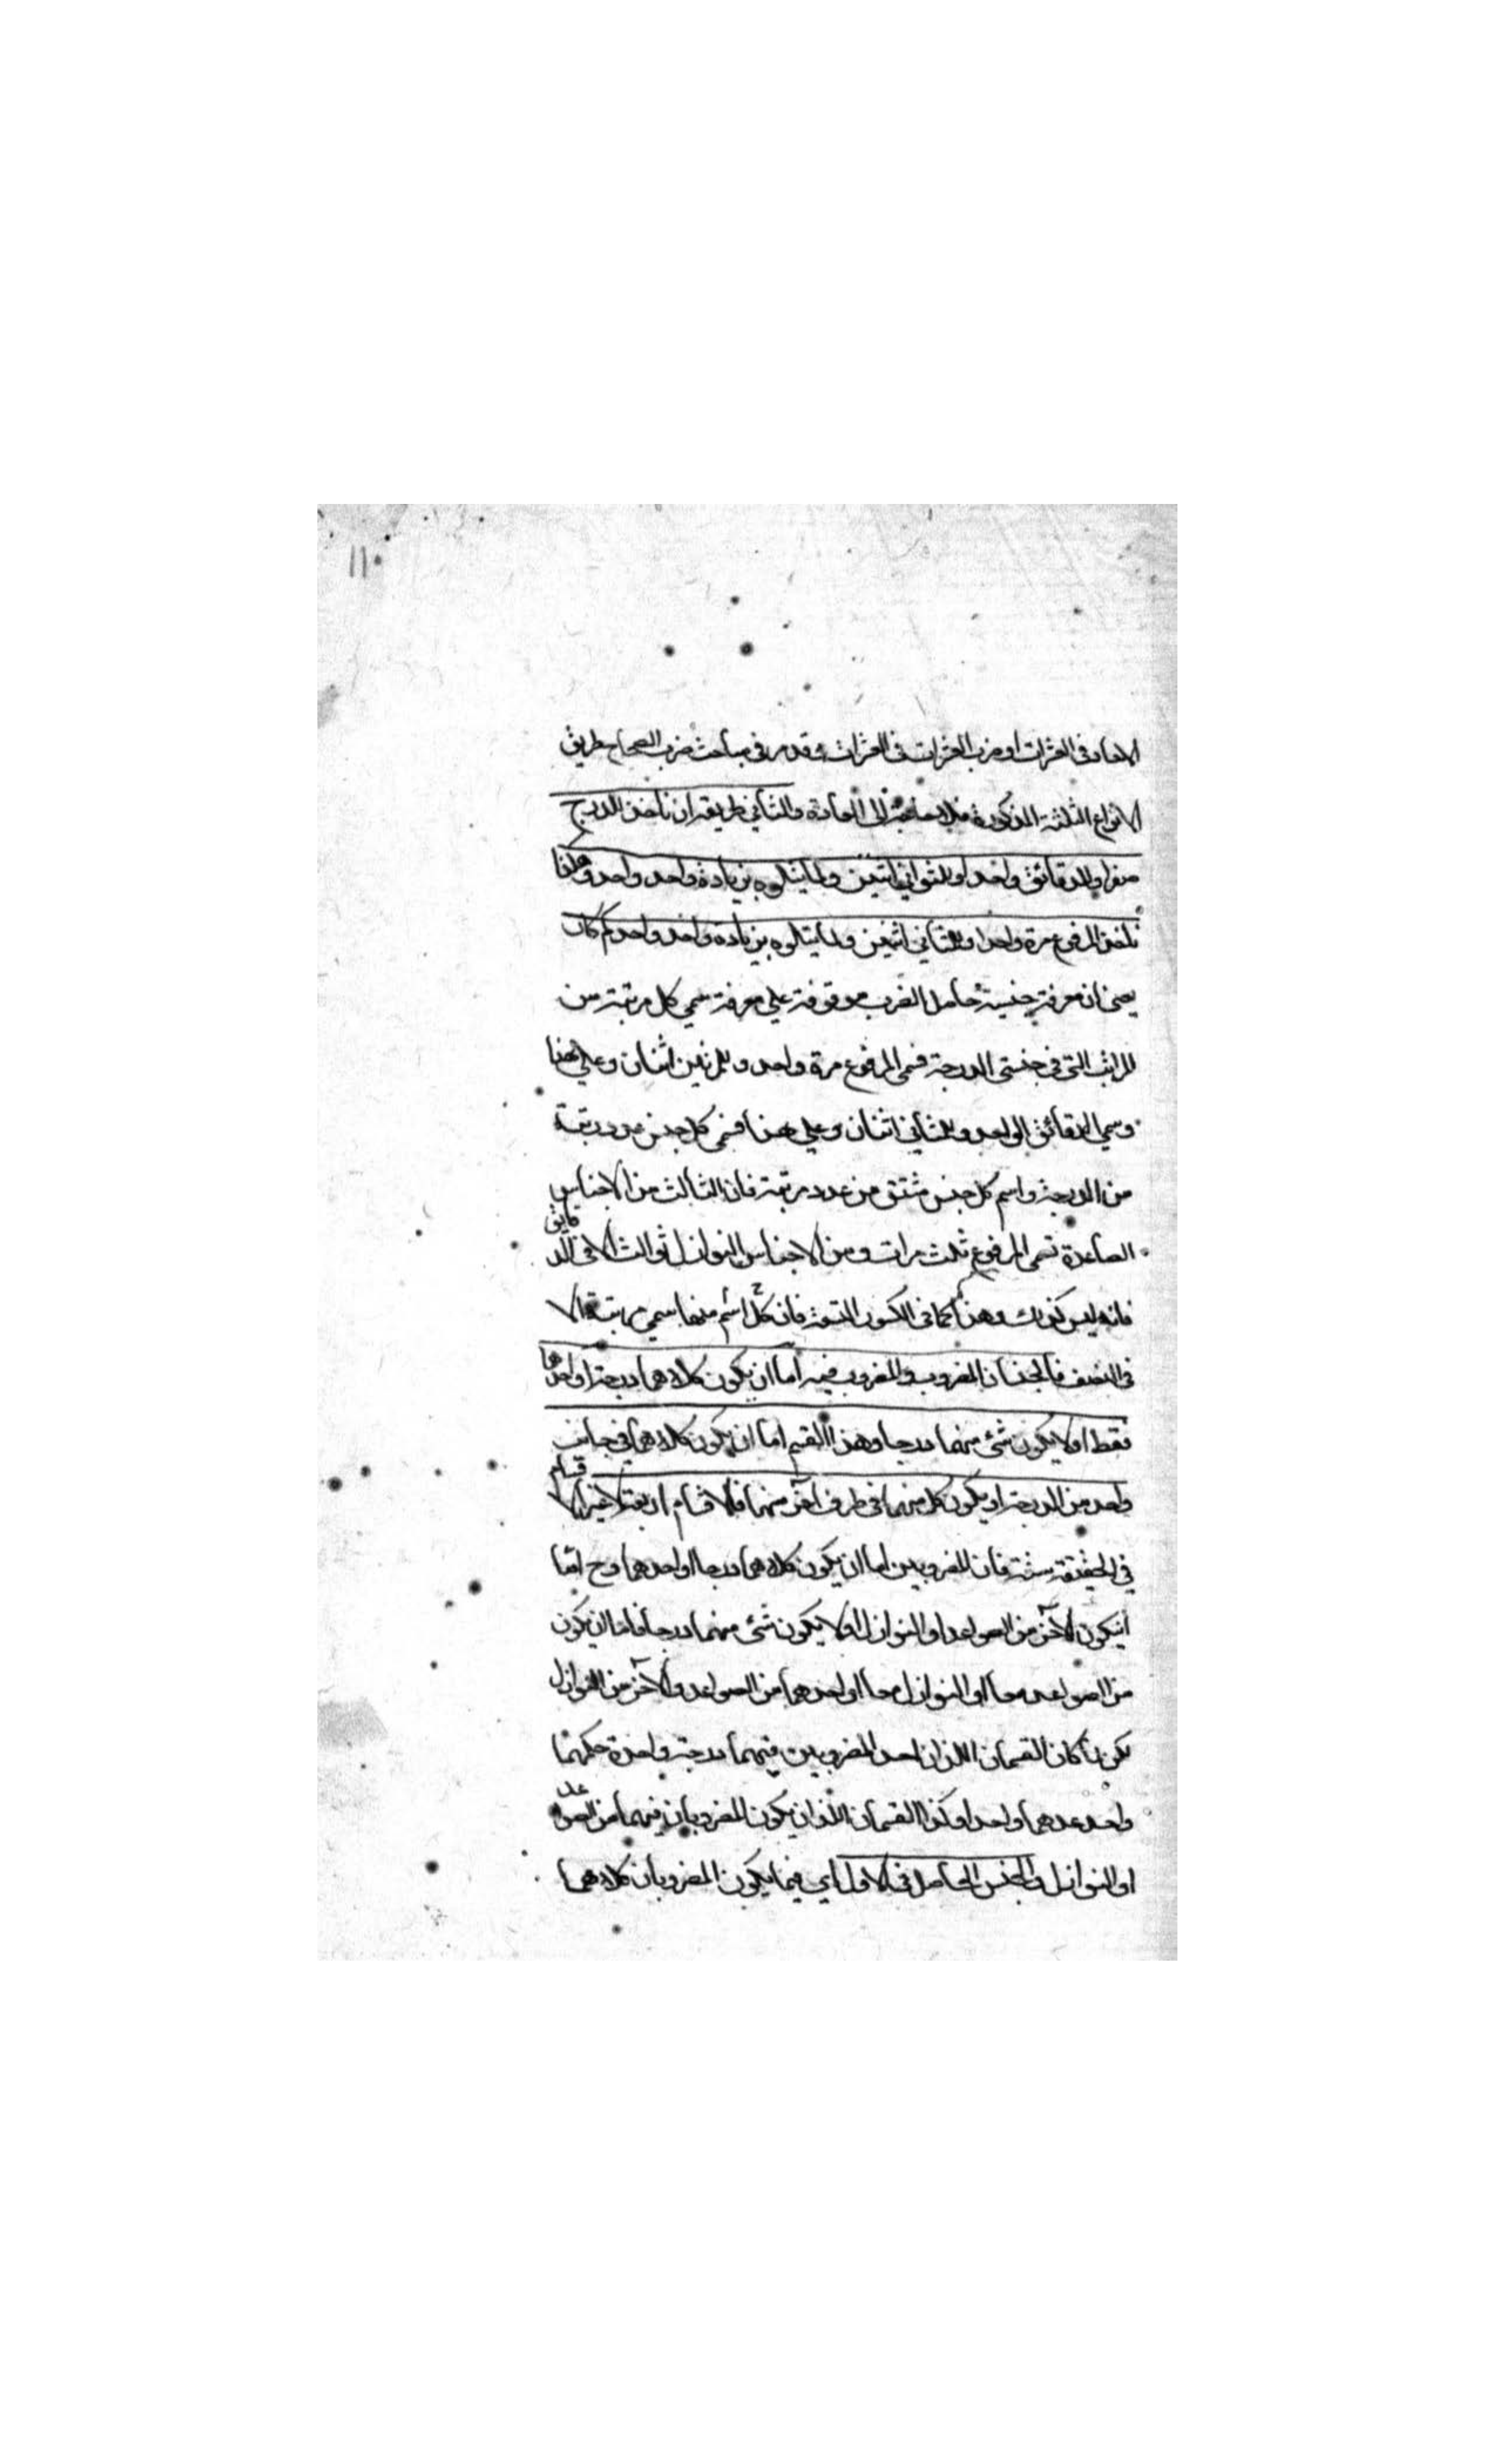 ١١
الاحاد فى العشرات او ضرب العشرات فى العشرات وقد مر فى مباحث ضرب الصحاح طريق
الانواع الثلثة المذكورة فلا حاجة الى العادة والثانى طريقه ان ناخذ للدرج
صفرا وللدقائق واحدا وللثوانى اثنين ولما يتلوه بزيادة واحد واحد وهكذا
ناخذ للمرفوع مرة واحدا وللثانى اثنين ولما يتلوه بزيادة واحد واحد كم كان
يعنى ان معرفة جنسية حاصل الضرب موقوفة على معرفة سمى كل مرتبة من
المراتب التى فى جنبتى الدرجة فسمى المرفوع مرة واحد وللمرتين اثنان وعلى هذا
وسمى الدقائق الواحد وللثانى اثنان وعلى هذا فسمى كل جنس عدد مرتبة
من الدرجة واسم كل جنس مشتق من عدد مرتبة فان الثالث من الاجناس
الصاعدة تسمى المرفوع ثلث مرات ومن الاجناس النوازل ثوالث الا فى الدقايق
فانه ليس كذلك وهذا كما فى الكسور التسعة فان كل اسم منها سمى مرتبة الا
فى النصف فالجنسان المضروب والمضروب فيه اما ان يكون كلاهما درجة او احدهما
فقط او لا يكون شئ منهما درجا وهذا القسم اما ان يكون كلاهما فى جانب
واحد من الدرجة او يكون كل منهما فى طرف آخر منهما فالاقسام اربعة لا غير الاقسام
فى الحقيقة ستة فان المضروبين اما ان يكون كلاهما درجا او احدهما وح اما
ان يكون الآخر من الصواعد او النوازل او لا يكون شئ منهما درجا فاما ان يكون
من الصواعد معا او النوازل معا او احدهما من الصواعد والآخر من النوازل
لكن لما كان القسمان اللذان احد المضروبين فيهما درجة واحدة حكمهما
واحد عدهما واحدا وكذا القسمان اللذان يكون المضروبان فيهما من الصواعد
او النوازل والجنس الحاصل فى الاول اى فيما يكون المضروبان كلاهما